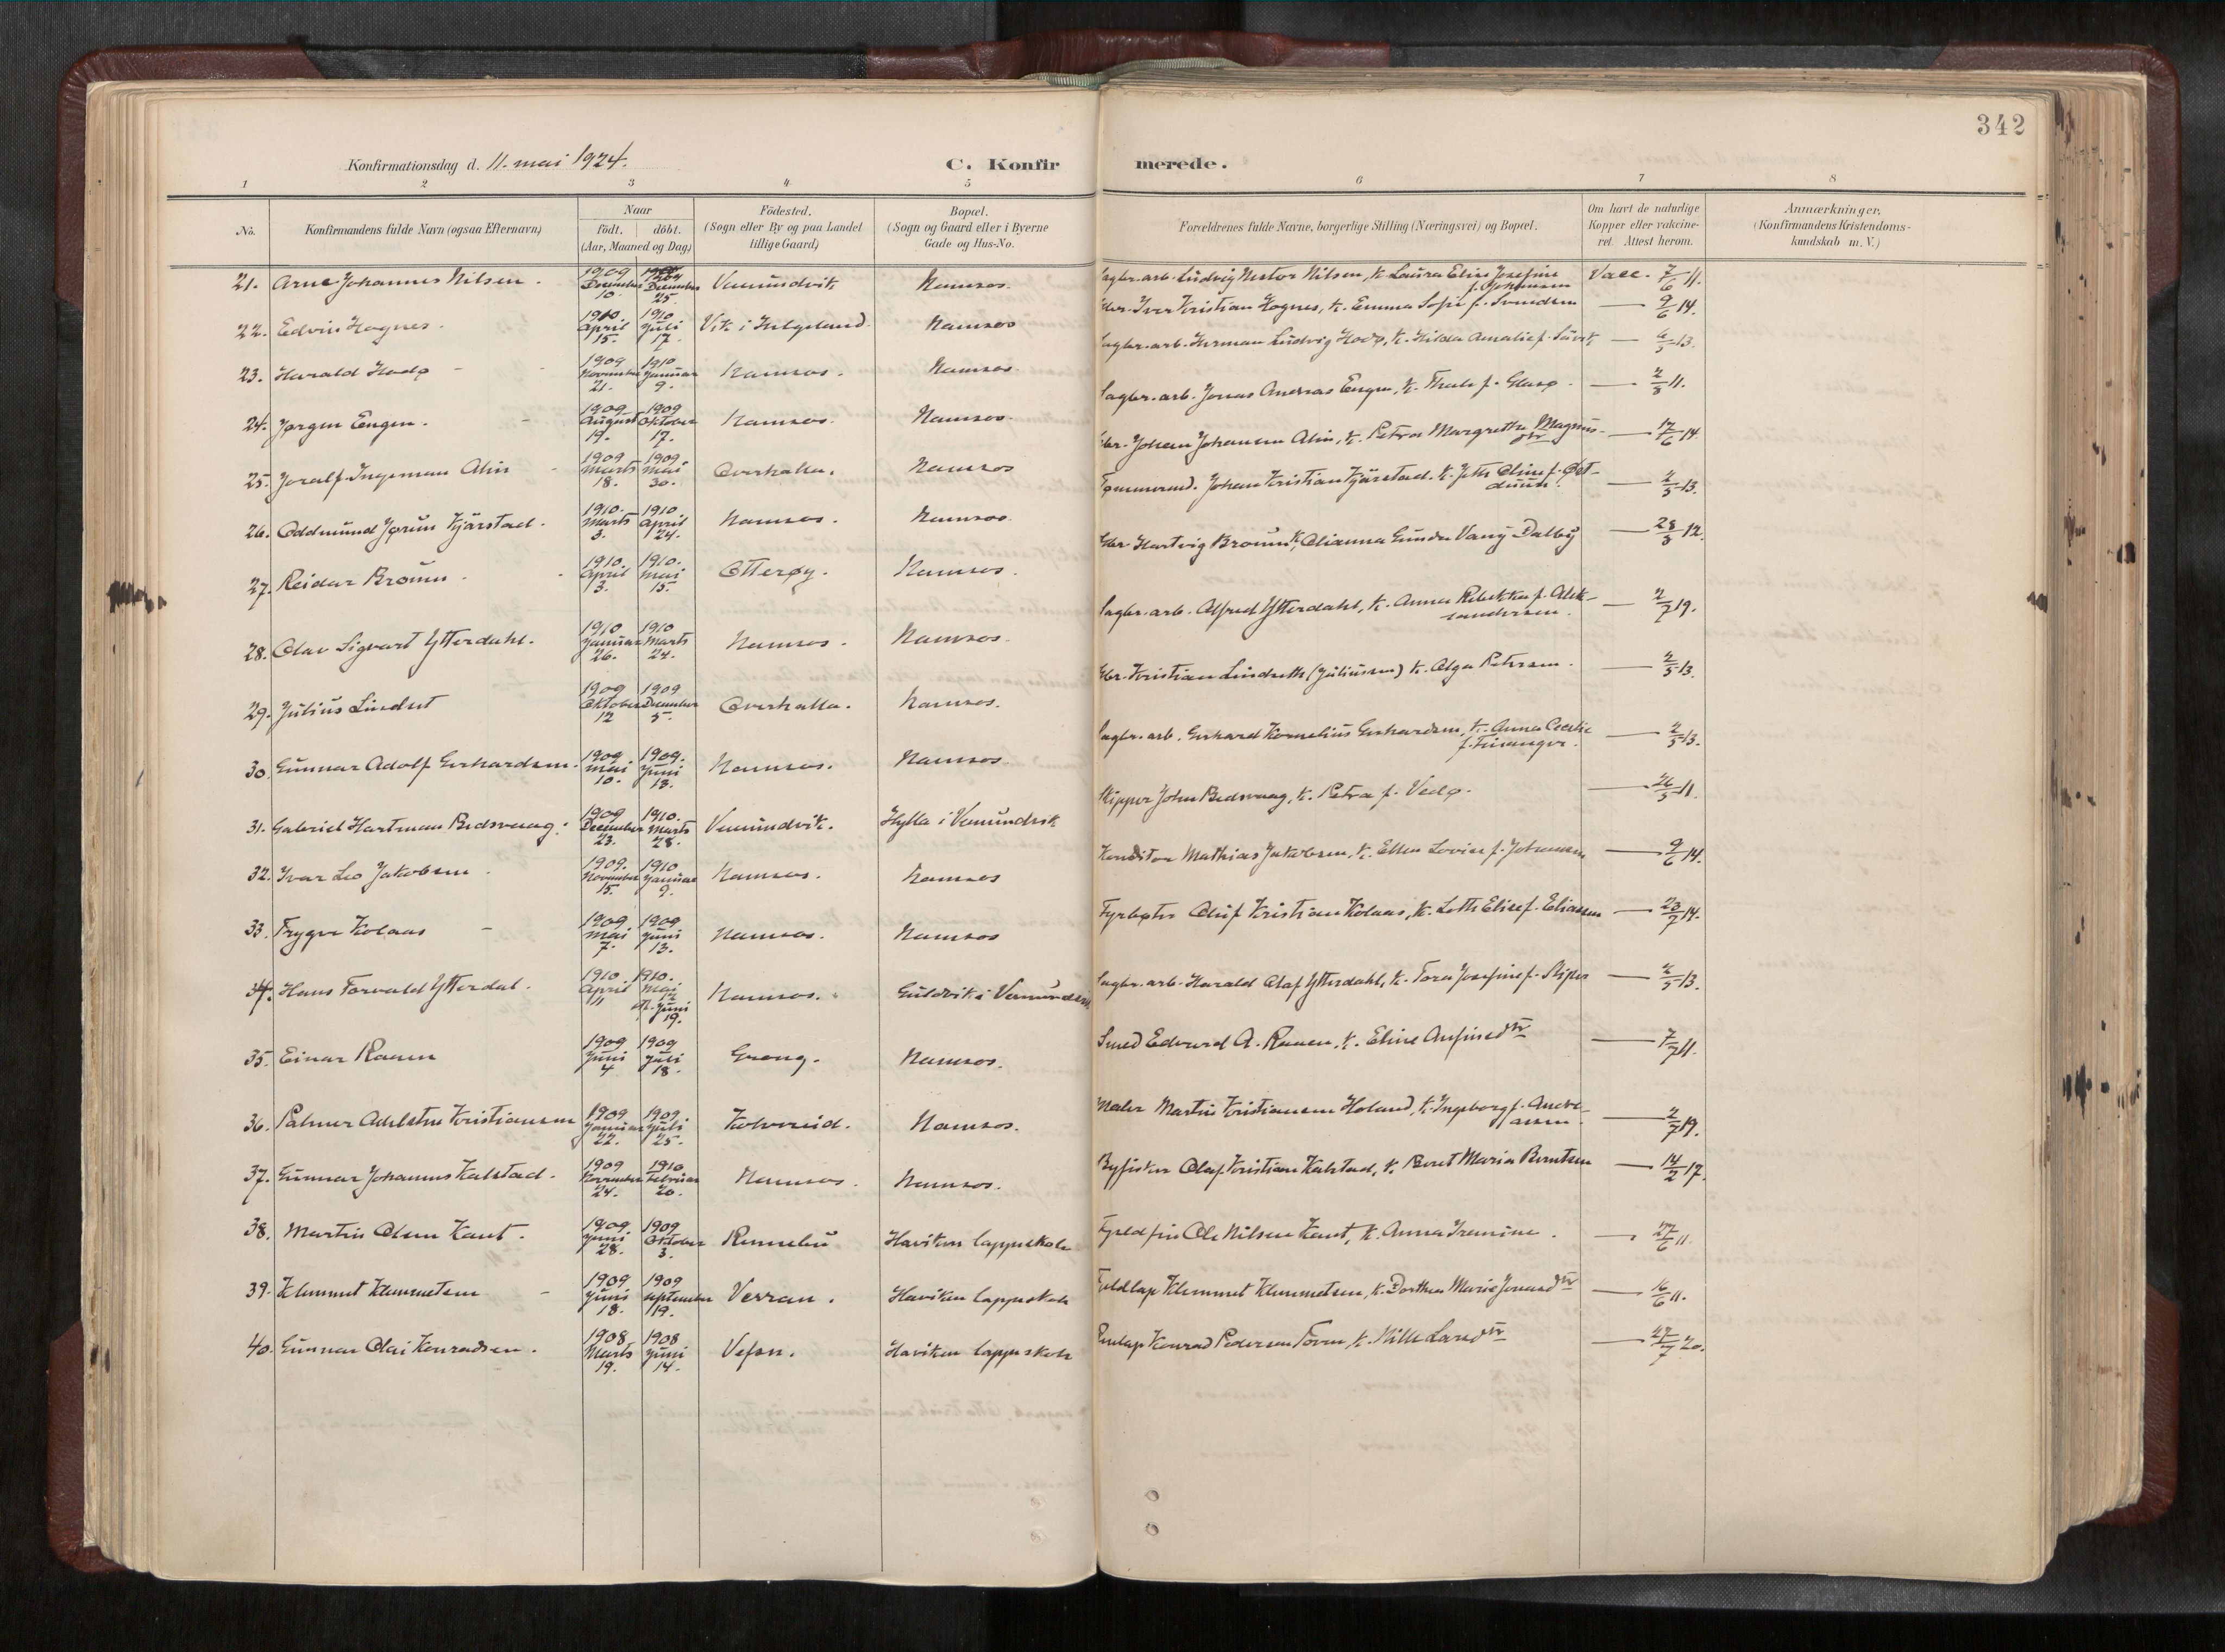 342
Konfirmationsdag d. 11. mai 1924.
C. Konfir merede.
1 2 3 4 5 6 7 8
No.
Konfirmandens fulde Navn (ogsaa Efternavn)
Naar
födt. döbt.
(Aar, Maaned og Dag)
Födested.
(Sogn eller By og paa Landet
tillige Gaard)
Bopæl.
(Sogn og Gaard eller i Byerne
Gade og Hus-No.
Forældrenes fulde Navne, borgerlige Stilling (Næringsvei) og Bopæl.
Om havt de naturlige
Kopper eller vakcine-
ret. Attest herom.
Anmærkninger,
(Konfirmandens Kristendoms-
kundskab m. V.)
21. Arne Johannes Nilsen. 1909 December 10. 1909 December 25. Vemundvik Namsos. Sagbr. arb. Ludvig Nestor Nilsen, k. Laura Elise Josefine f. Johansen Vacc. 7/6 11.
22. Edvin Hognes. 1910 April 15. 1910 Juli 17. Vik i Helgeland. Namsos Iver Kristian Hognes, k. Emma Sofie f. Svendsen — 9/6 14.
23. Harald Hodø 1909 November 21. 1910 Januar 9. Namsos. Namsos Sagbr. arb. Herman Ludvig Hodø, k. Hilda Amalie f. — 2/5 13.
24. Jørgen Engen. 1909 August 19. 1909 Oktober 17. Namsos. Namsos Sagbr. arb. Jonas Andreas Engen, k. Thale f. Glasø. — 2/5 11.
25. Joralf Ingeman Alin 1909 Marts 18. 1909 Mai 30. Overhalla. Namsos Johan Johansen Alin, k. Petra Margrethe Magnus- dtr — 17/6 14.
26. Oddmund Jørun Kjærstad. 1910. Marts 3. 1910 April 24. Namsos. Namsos Tømmermd. Johan Kristian Kjærstad, k. Oline f. Øst- duun. — 2/5 13.
27. Reidar Broum. 1910. April 3. 1910. Mai 15. Otterøy. Namsos. Hartvig Broum, k. Olianna Gunda Vang Dalby — 28/5 12.
28. Olav Sigvart Ytterdahl. 1910 Januar 26. 1910 Marts 24. Namsos. Namsos. Sagbr. arb. Alfred Ytterdahl, k. Anna Rebekka f. Alek- sandersen. — 2/7 19.
29. Julius Lindset 1909 Oktober 12 1909 December 5. Overhalla. Namsos. Kristian Lindseth (Juliussen) k. Olga Petersen. — 2/5 13.
30. Gunnar Adolf Gerhardsen. 1909 Mai 10. 1909. Juni 13. Namsos. Namsos Sagbr. arb. Gerhard Kornelius Gerhardsen, k. Anna Cecilie f. Finanger. — 2/5 13.
31. Gabriel Hartman Bredsvaag. 1909 December 23. 1910. Marts 28. Vemundvik. Hylla i Vemundvik Skipper John Bredsvaag, k. Petra f. Vedø. — 26/5 11.
32. Ivar Leo Jakobsen. 1909. November 15. 1910 Januar 9. Namsos. Namsos Konditor Mathias Jakobsen, k. Ellen Lovise f. Johansen — 9/6 14.
33. Trygve Kolaas 1909 Mai 7. 1909 Juni 13. Namsos. Namsos Fyrbøter Oluf Kristian Kolaas, k. Elise f. Eliassen — 23/7 14.
34. Hans Torvald Ytterdal. 1910 April 11 1910. Mai 12 Juni 19. Namsos. Guldvik i Vemundvik Sagbr. arb. Harald Olaf Ytterdahl, k. Tora Josefine f. — 2/5 13.
35. Einar Raaen 1909 Juni 4 1909 Juli 18. Grong. Namsos. Smed Edvard A. Raaen, k. Eline Anfinsdtr — 7/7 11.
36. Palmer Adelsten Kristiansen 1909 Januar 22. 1909. Juli 25. Kolvereid. Namsos. Maler Martin Kristiansen Holand, k. Ingeborg f. Andre- assen. — 2/7 19.
37. Gunnar Johannes Kalstad. 1909 November 24. 1910 Februar 20. Namsos. Namsos. Byfisker Olaf Kristian Kalstad, k. Beret Maria Berntsen — 14/2 17.
38. Martin Olsen Kant. 1909. Juni 28. 1909 Oktober 3. Rennebu Havikens lappeskole Ole Nilsen Kant, k. Anna — 27/6 11.
39. Klemmet Klemmetsen 1909. Juni 18. 1909 September 19. Verran. Haviken lappeskole Fjeldlap Klemmet Klemmetsen, k. Dorthea Marie Jonasdtr — 16/6 11.
40. Gunnar Olai Konradsen. 1908 Marts 19. 1908 Juni 14. Vefsn. Haviken lappeskole Konrad Pedersen Toven, k. Nille Larsdtr — 27/7 20.